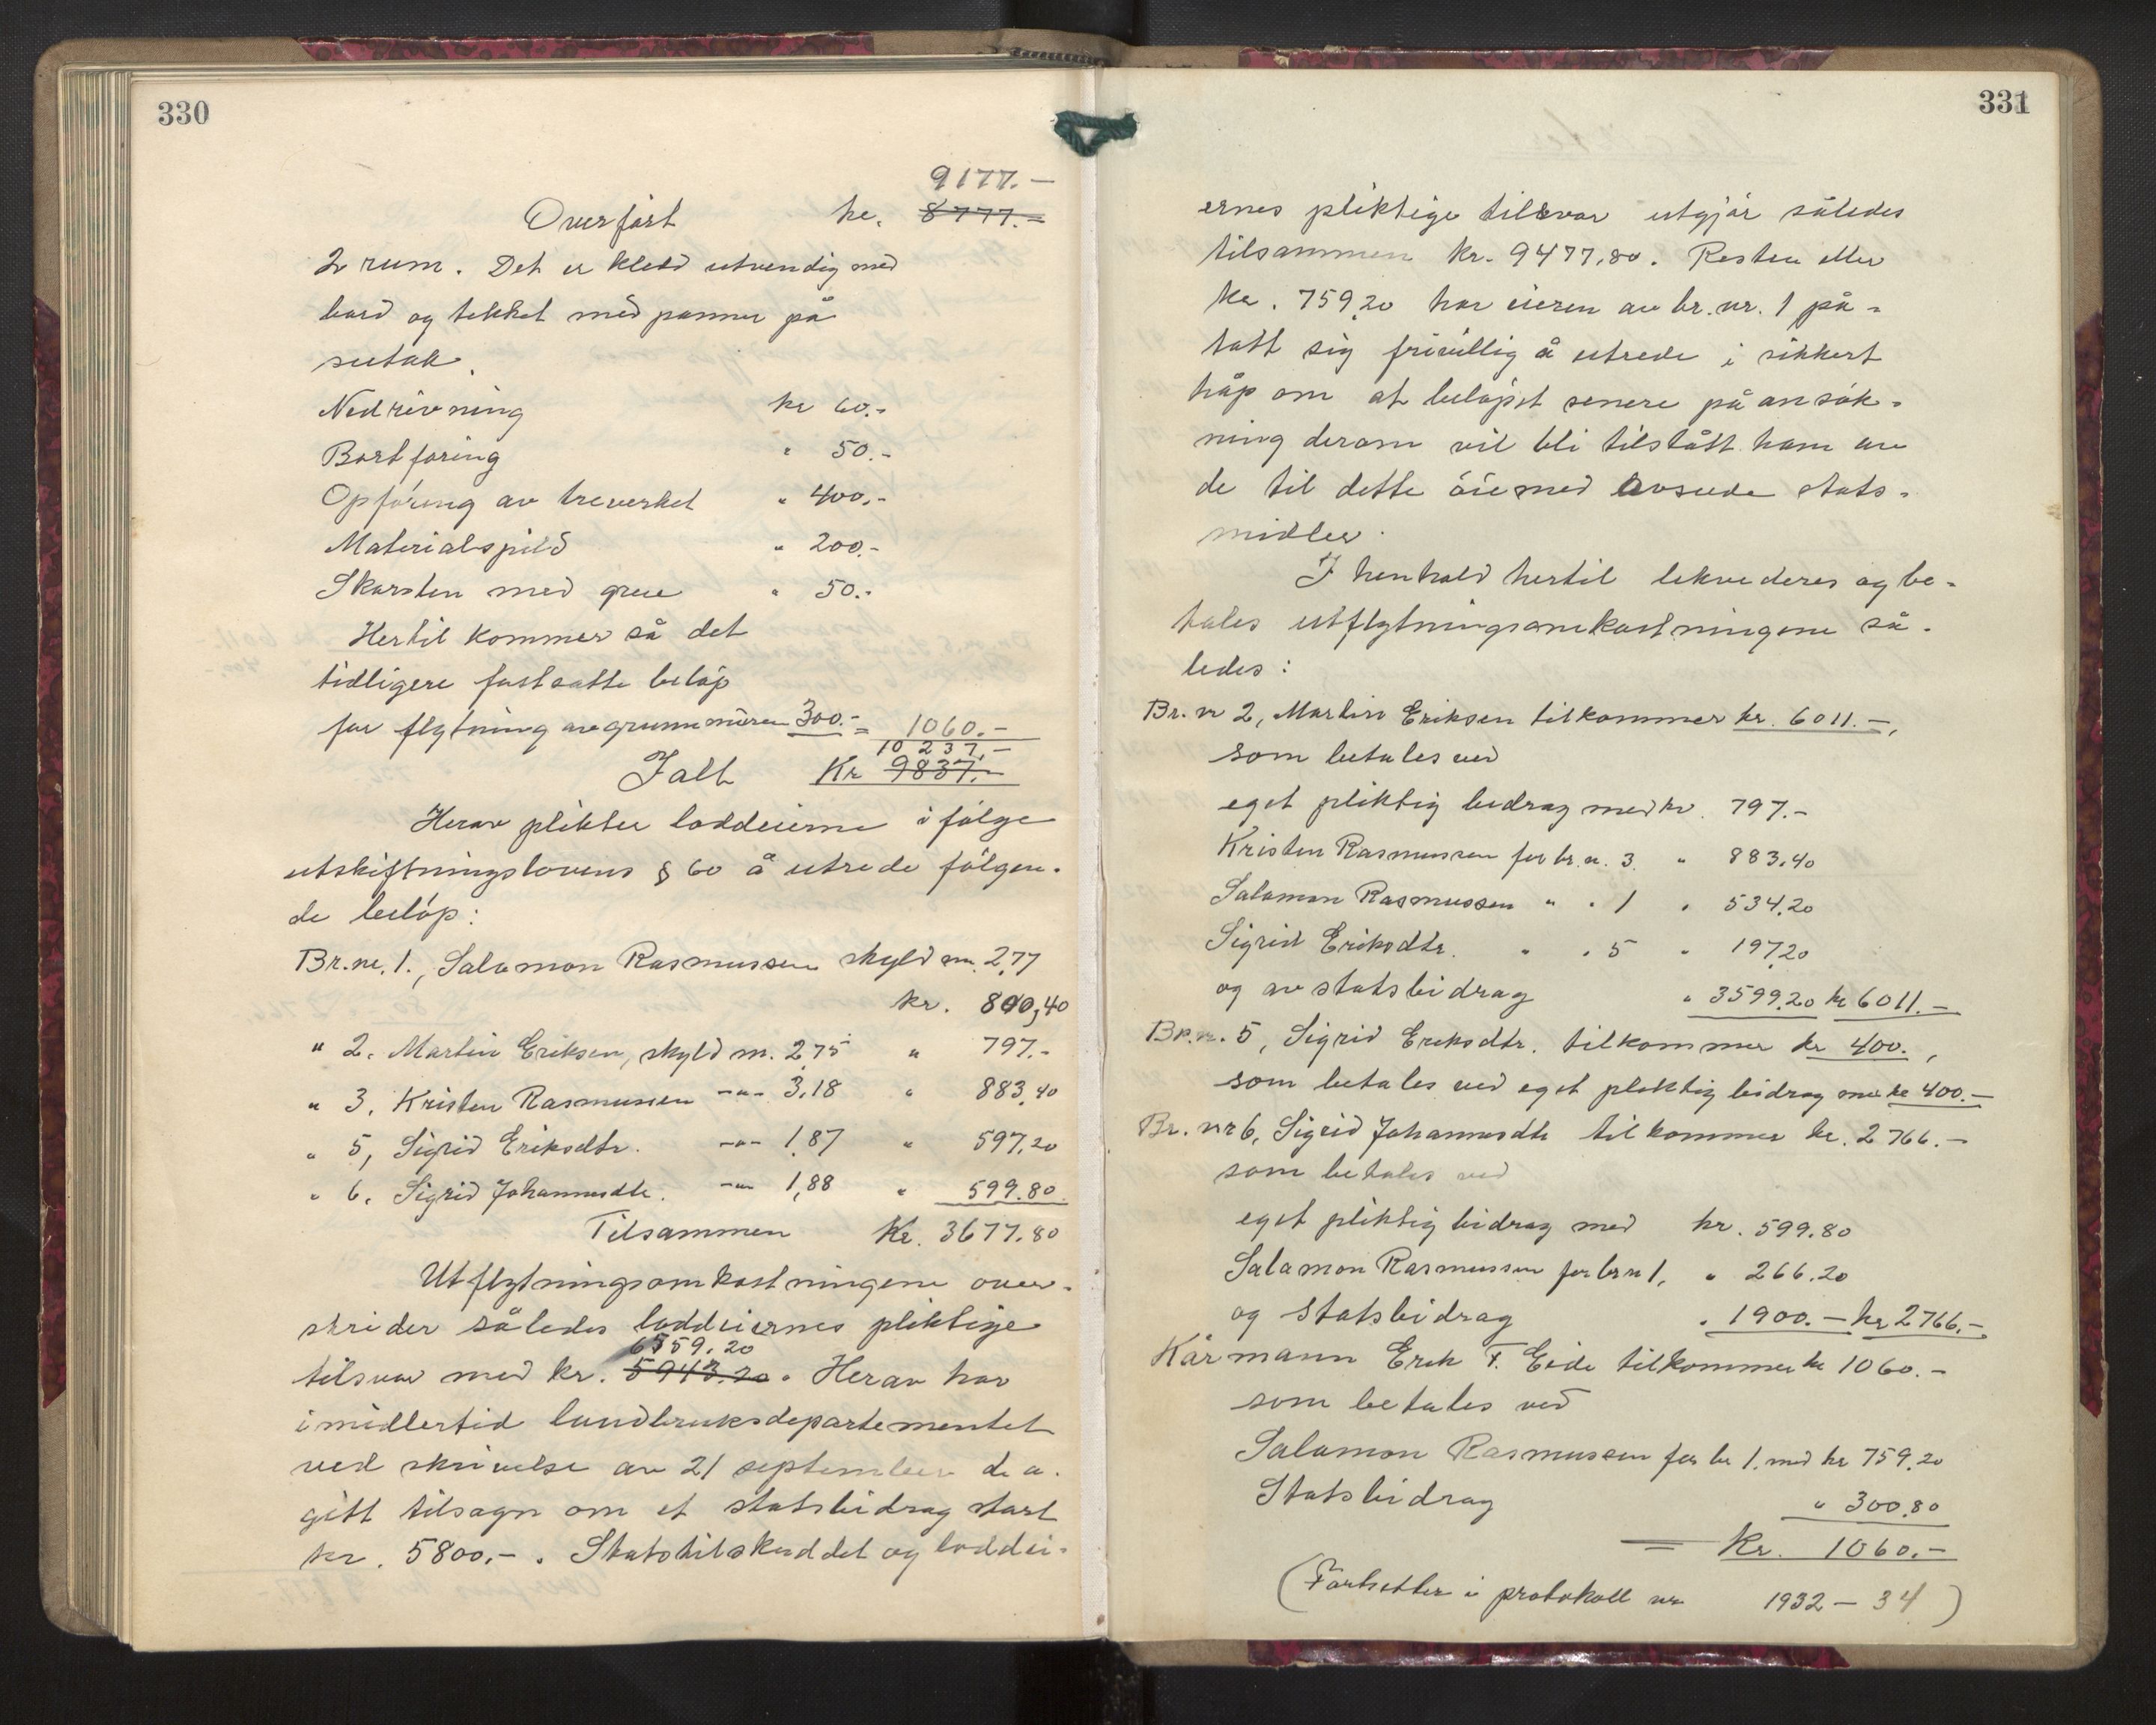 330
9177.-
Overført kr. 8777.-
2 rum. Det er kledd utvendig med
bord og tekket med panner på
sutak.
Nedrivning kr 60.-
Bortføring " 50.-
Opføring av treverket " 400.-
Materialspild " 200.-
Skorsten med grue " 50.-
Hertil kommer så det
tidligere fastsatte beløp
for flytning av grunnmuren 300.- = 1060.-
10237.-
Ialt Kr 9837.-
Herav plikter loddeierne i følge
utskiftningslovens § 60 å utrede følgen-
de beløp:
Br.nr. 1., Salamon Rasmussen skyld m. 2,77
kr. 800,40
" 2. Martin Eriksen, skyld m. 2,75 " 797.-
" 3. Kristen Rasmussen -"- 3,18 " 883,40
" 5, Sigrid Eriksdtr. -"- 1,87 " 597,20
" 6. Sigrid Johannesdtr. -"- 1,88 " 599.80
Tilsammen Kr. 3677.80
Utflytningsomkostningene over-
skrider således loddeiernes pliktige
6559.20
tilsvar med kr. 5943.20. Herav har
imidlertid landbruksdepartementet
ved skrivelse av 21 september d.a.
gitt tilsagn om et statsbidrag stort
kr. 5800.-. Statstilskuddet og loddei-
331
ernes pliktige tilsvar utgjør således
tilsammen kr. 9477,80. Resten eller
kr. 759,20 har eieren av br.nr. 1 på-
tatt sig frivillig å utrede i sikkert
håp om at beløpet senere på ansøk-
ning derom vil bli tilstått ham av
de til dette øiemed avsede stats-
midler.
I henhold hertil lekvideres og be-
tales utflytningsomkostningene så-
ledes:
Br. nr 2, Martin Eriksen tilkommer kr. 6011.-,
som betales ved
eget pliktig bidrag med kr. 797.-
Kristen Rasmussen for br. nr. 3. " 883,40
Salamon Rasmussen " " 1 " 534,20
Sigrid Eriksdtr. " " 5 " 197,20
og av statsbidrag " 3599,20 kr 6011.-
Br.nr. 5, Sigrid Eriksdtr. tilkommer kr 400.,
som betales ved eget pliktig bidrag med kr 400.-
Br. nr 6, Sigrid Johannesdtr tilkommer kr. 2766.-
som betales ved
eget pliktig bidrag med kr. 599.80
Salamon Rasmussen for br nr 1, " 266.20
og statsbidrag " 1900.- kr 2766.-
Kårmann Erik T. Eide tilkommer kr 1060.-
som betales ved
Salamon Rasmussen for br 1. med kr 759,20
Statsbidrag " 300,80
= Kr. 1060.-
(Fortsetter i protokoll nr 1932 - 34)